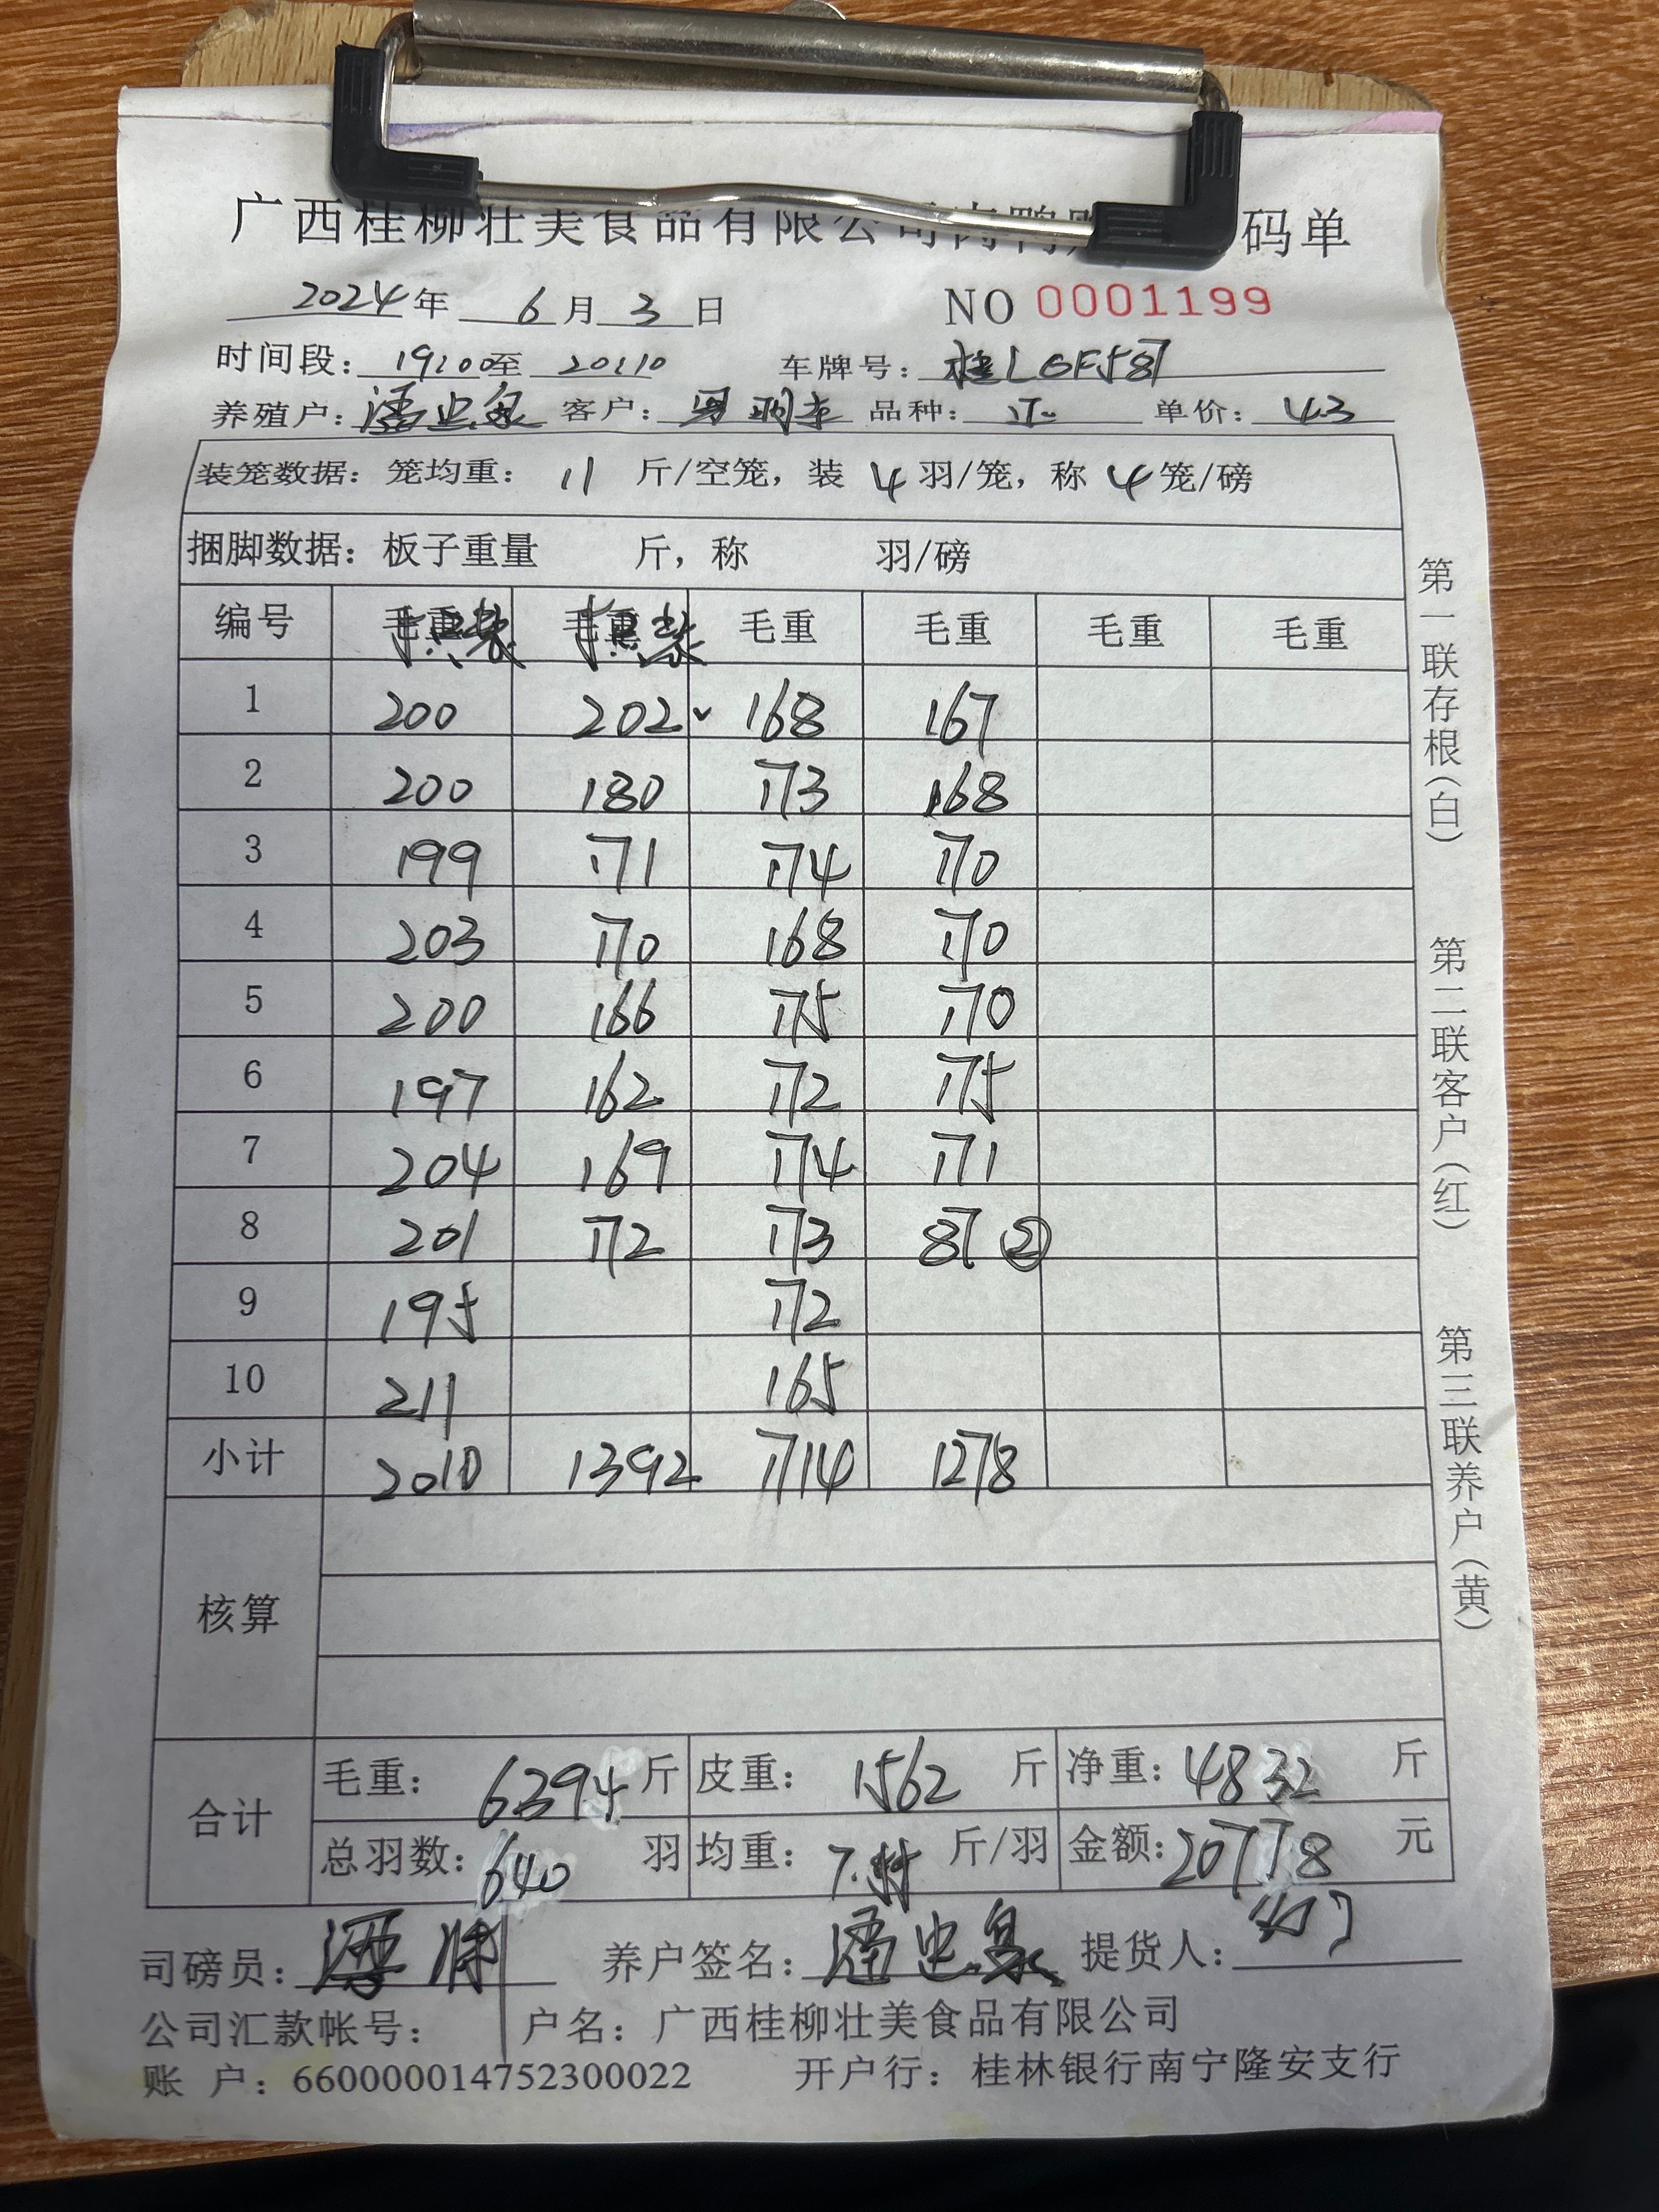 广西桂柳壮美食品有限公司肉鸭 码单
2024年 6月3日 NO 0001199
时间段：19:00至 20:10 车牌号：桂LGF587
养殖户：潘忠泉 客户： 品种： 单价：4.3
装笼数据：笼均重： 11 斤/空笼，装 4 羽/笼，称 4 笼/磅
捆脚数据：板子重量 斤，称 羽/磅
编号 毛重 毛重 毛重 毛重 毛重 毛重
1 200 202 168 167
2 200 180 173 168
3 199 171 174 170
4 203 170 168 170
5 200 166 175 170
6 197 162 172 175
7 204 169 174 171
8 201 172 173 87 ②
9 195 172
10 211 165
小计 2010 1392 1714 1278
核算
合计 毛重：6394斤 皮重：1562斤 净重：4832斤
总羽数：640羽 均重：7.55斤/羽 金额：20778元
司磅员： 养户签名：潘忠泉 提货人：
公司汇款帐号： 户名：广西桂柳壮美食品有限公司
账 户：660000014752300022 开户行：桂林银行南宁隆安支行
第一联存根（白）
第二联客户（红）
第三联养户（黄）